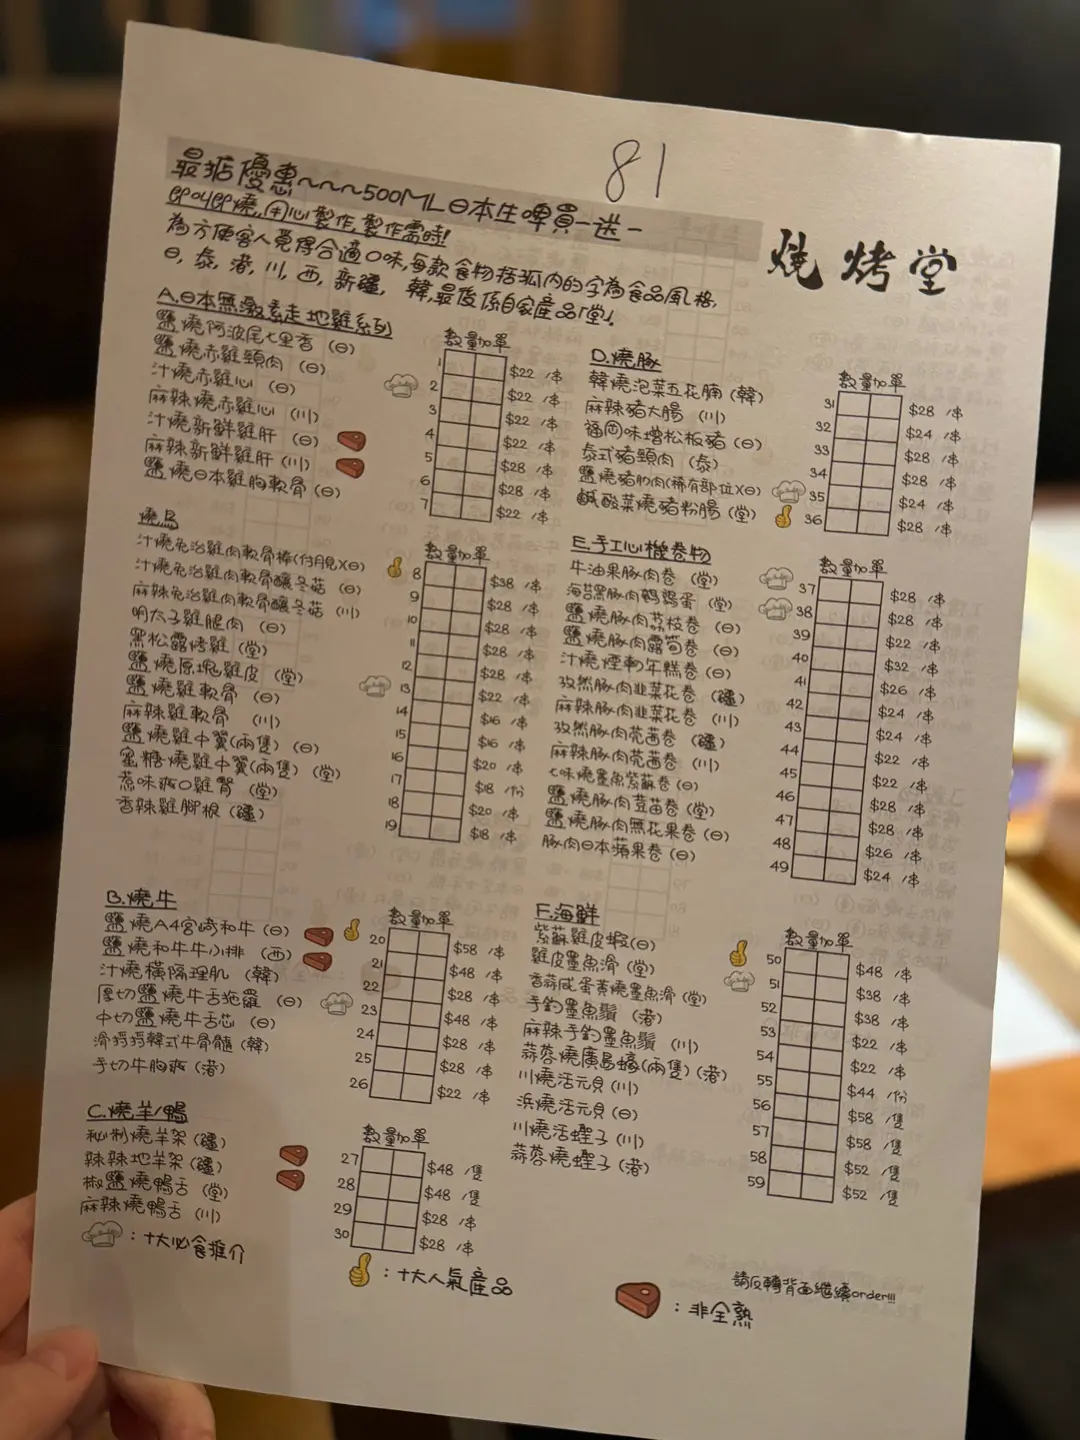 81
最掂優惠~~~~500ML日本生啤買一送一
即叫即燒,用心製作,製作需時!
為方便客人覓得合適口味,每款食物括弧內的字為食品風格,
日, 泰, 港, 川, 西, 新疆, 韓,最後係自家產品「堂」。
燒烤堂
A.日本無激素走地雞系列
數量加單
鹽燒阿波尾七里香 (日) 1 $22 /串
鹽燒赤雞頸肉 (日) 2 $22 /串
汁燒赤雞心 (日) 3 $22 /串
麻辣燒赤雞心 (川) 4 $22 /串
汁燒新鮮雞肝 (日) 5 $28 /串
麻辣新鮮雞肝 (川) 6 $28 /串
鹽燒日本雞胸軟骨 (日) 7 $22 /串
燒鳥
數量加單
汁燒免治雞肉軟骨棒(付月見)(日) 8 $38 /串
汁燒免治雞肉軟骨釀冬菇 (日) 9 $28 /串
麻辣免治雞肉軟骨釀冬菇 (川) 10 $28 /串
明太子雞腿肉 (日) 11 $28 /串
黑松露烤雞 (堂) 12 $28 /串
鹽燒原塊雞皮 (堂) 13 $22 /串
鹽燒雞軟骨 (日) 14 $16 /串
麻辣雞軟骨 (川) 15 $16 /串
鹽燒雞中翼(兩隻) (日) 16 $20 /串
蜜糖燒雞中翼(兩隻) (堂) 17 $18 /份
惹味爽口雞腎 (堂) 18 $20 /串
香辣雞腳根 (疆) 19 $18 /串
B.燒牛
數量加單
鹽燒A4宮崎和牛 (日) 20 $58 /串
鹽燒和牛牛小排 (西) 21 $48 /串
汁燒橫隔理肌 (韓) 22 $28 /串
厚切鹽燒牛舌拖羅 (日) 23 $48 /串
中切鹽燒牛舌芯 (日) 24 $28 /串
滑捋捋韓式牛骨髓 (韓) 25 $28 /串
手切牛胸爽 (港) 26 $22 /串
C.燒羊/鴨
數量加單
秘制燒羊架 (疆) 27 $48 /隻
辣辣地羊架 (疆) 28 $48 /隻
椒鹽燒鴨舌 (堂) 29 $28 /串
麻辣燒鴨舌 (川) 30 $28 /串
:十大必食推介
:十大人氣產品
D.燒豚
數量加單
韓燒泡菜五花腩 (韓) 31 $28 /串
麻辣豬大腸 (川) 32 $24 /串
福岡味增松板豬 (日) 33 $28 /串
泰式豬頸肉 (泰) 34 $28 /串
鹽燒豬肋肉(稀有部位)(日) 35 $24 /串
鹹酸菜燒豬粉腸 (堂) 36 $28 /串
E.手工心機卷物
數量加單
牛油果豚肉卷 (堂) 37 $28 /串
海苔黑豚肉鵪鶉蛋 (堂) 38 $28 /串
鹽燒豚肉荔枝卷 (日) 39 $22 /串
鹽燒豚肉露筍卷 (日) 40 $32 /串
汁燒煙鴨年糕卷 (日) 41 $26 /串
孜然豚肉韭菜花卷 (疆) 42 $24 /串
麻辣豚肉韭菜花卷 (川) 43 $24 /串
孜然豚肉莞茜卷 (疆) 44 $22 /串
麻辣豚肉莞茜卷 (川) 45 $22 /串
七味燒墨魚紫蘇卷 (日) 46 $28 /串
鹽燒豚肉荳苗卷 (堂) 47 $28 /串
鹽燒豚肉無花果卷 (日) 48 $26 /串
豚肉日本蘋果卷 (日) 49 $24 /串
F.海鮮
數量加單
紫蘇雞皮蝦(日) 50 $48 /串
雞皮墨魚滑 (堂) 51 $38 /串
香蒜咸蛋黃燒墨魚滑 (堂) 52 $38 /串
手釣墨魚鬚 (港) 53 $22 /串
麻辣手釣墨魚鬚 (川) 54 $22 /串
蒜蓉燒廣島蠔(兩隻) (港) 55 $44 /份
川燒活元貝 (川) 56 $58 /隻
浜燒活元貝 (日) 57 $58 /隻
川燒活蟶子 (川) 58 $52 /隻
蒜蓉燒蟶子 (港) 59 $52 /隻
請反轉背面繼續order!!!
:非全熟